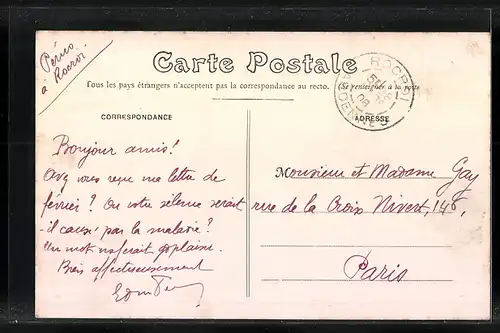 Périn
à Rocroi
Carte Postale
Tous les pays étrangers n'acceptent pas la correspondance au recto. (Se renseigner à la poste
ROCROI
ARDENNES
CORRESPONDANCE
ADRESSE
Bonjour amis!
Avez vous reçu ma lettre de
février? Ou votre silence serait
-il causé par la maladie?
Un mot me ferait gd plaisir.
Bien affectueusement
Monsieur et Madame Gay
rue de la Croix Nivert, 148,
Paris